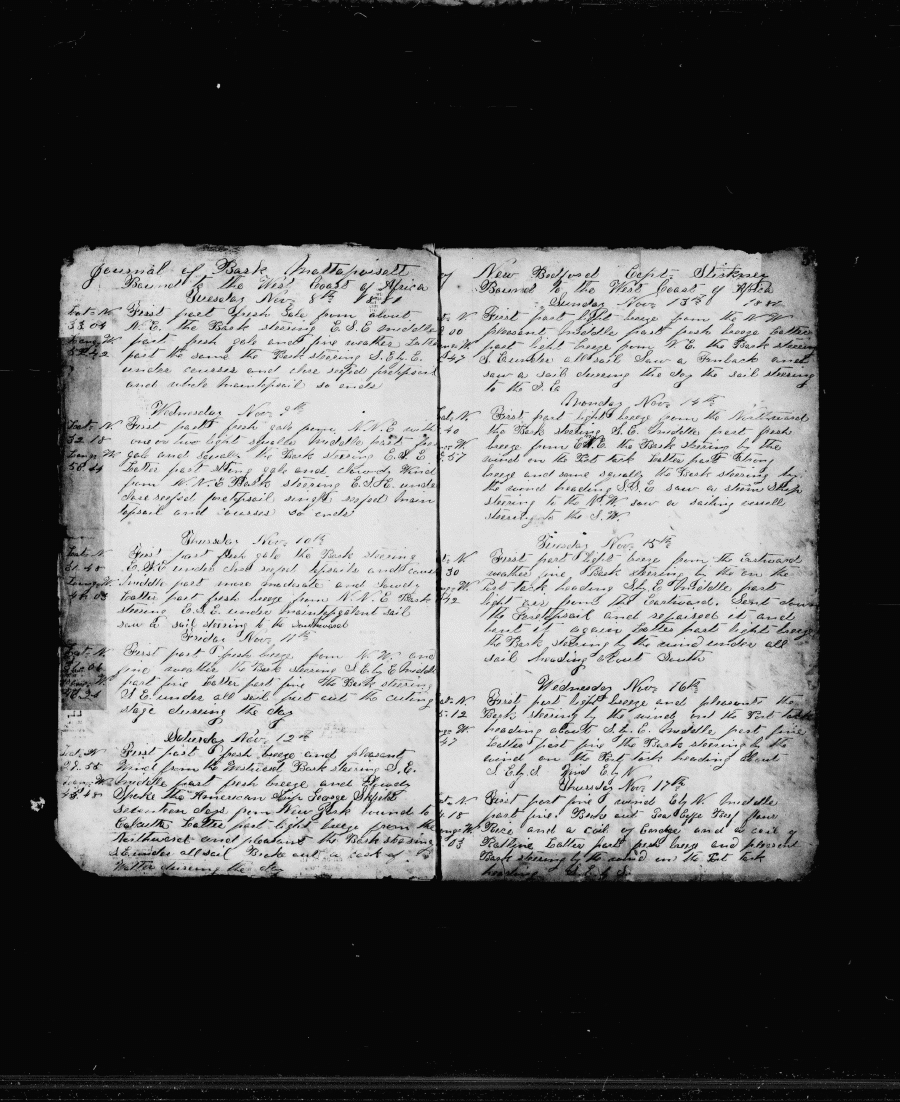 Journal of Bark Mattapoisett
Bound to the West Coast of Africa
Tuesday Nov. 8th 1881
Lat. N First part fresh Gale from about
33.04 N.E. the Bark steering E.S.E middle
Long. W part fresh gale and fine weather Latter
52.42 part the same the Bark steering S.E. by E.
under courses and close reefed foretopsail
and whole maintopsail so ends
Wednesday Nov. 9th
Lat. N First part fresh gale from N.N.E with
32.18 one or two light squalls middle part
Long. W gale and squally the Bark steering E.S.E
50.44 Latter part strong gale and cloudy Wind
from N.N.E Bark steering E.S.E. under
close reefed foretopsail single reefed main
topsail and courses so ends
Thursday Nov. 10th
Lat. N First part fresh gale the Bark steering
31.40 E.S.E under close reefed topsails and courses
Long. W middle part more moderate and
Latter part fresh breeze from N.N.E Bark
steering E.S.E. under maintopgalant sail
saw a sail steering to the southward
Friday Nov. 11th
Lat. N First part fresh breeze from N.W. and
fine weather the Bark steering S.E. by E middle
Long. W part fine Latter part fine the Bark steering
S.E. under all sail put out the cutting
stage dureing the day
Saturday Nov. 12th
Lat. N First part fresh breeze and pleasant
29.55 Wind from the Westward Bark steering S.E.
Long. W middle part fresh breeze and Cloudy
Spoke the American Ship George
seventeen days from New York bound to
Calcutta Latter part light breeze from the
Northward and pleasant the Bark steering
S.E. under all sail Broke out a cask of
Watter dureing the day
of New Bedford Capt. Stickney
Bound to the West Coast of Africa
Sunday Nov. 13th 1881
Lat. N First part light breeze from the N.W.
00 pleasant middle part fresh breeze Latter
Long. W part light breeze from N.E. the Bark steering
47 S.E. under all sail Saw a Finback and
saw a sail dureing the day the sail steering
to the S.E
Monday Nov. 14th
Lat. N. First part light breeze from the Northward
40 the Bark steering S.E. middle part fresh
Long. W breeze from E.N.E the Bark steering by the
57 wind on the Port tack Latter part Strong
breeze and some squally the Bark steering by
the wind heading S.S.E saw a steam Ship
steering to the N.W. saw a sailing vessell
steering to the S.W.
Tuesday Nov. 15th
Lat. N First part light breeze from the Eastward
30 weather fine Bark steering by the on the
Long. W Port tack heading S. by E. Middle part
42 light airs from the Eastward. Sent down
the Foretopsail and repaired it and
bent it again Latter part light breeze
the Bark steering by the wind under all
sail heading about South
Wednesday Nov. 16th
Lat. N. First part light breeze and pleasant the
12 Bark steering by the wind on the Port tack
Long. W heading about S. by E. Middle part fine
47 Latter part fine the Bark steering by the
wind on the Port tack heading about
S.E. by S. Wind E. by N
Thursday Nov. 17th
Lat. N First part fine wind E. by N. Middle
18 part fine. Broke out
Long. W and a coil of Cordge and a coil of
03 Ratline Latter part fresh breeze and pleasant
Bark steering by the wind on the Port tack
heading S.E. by S.